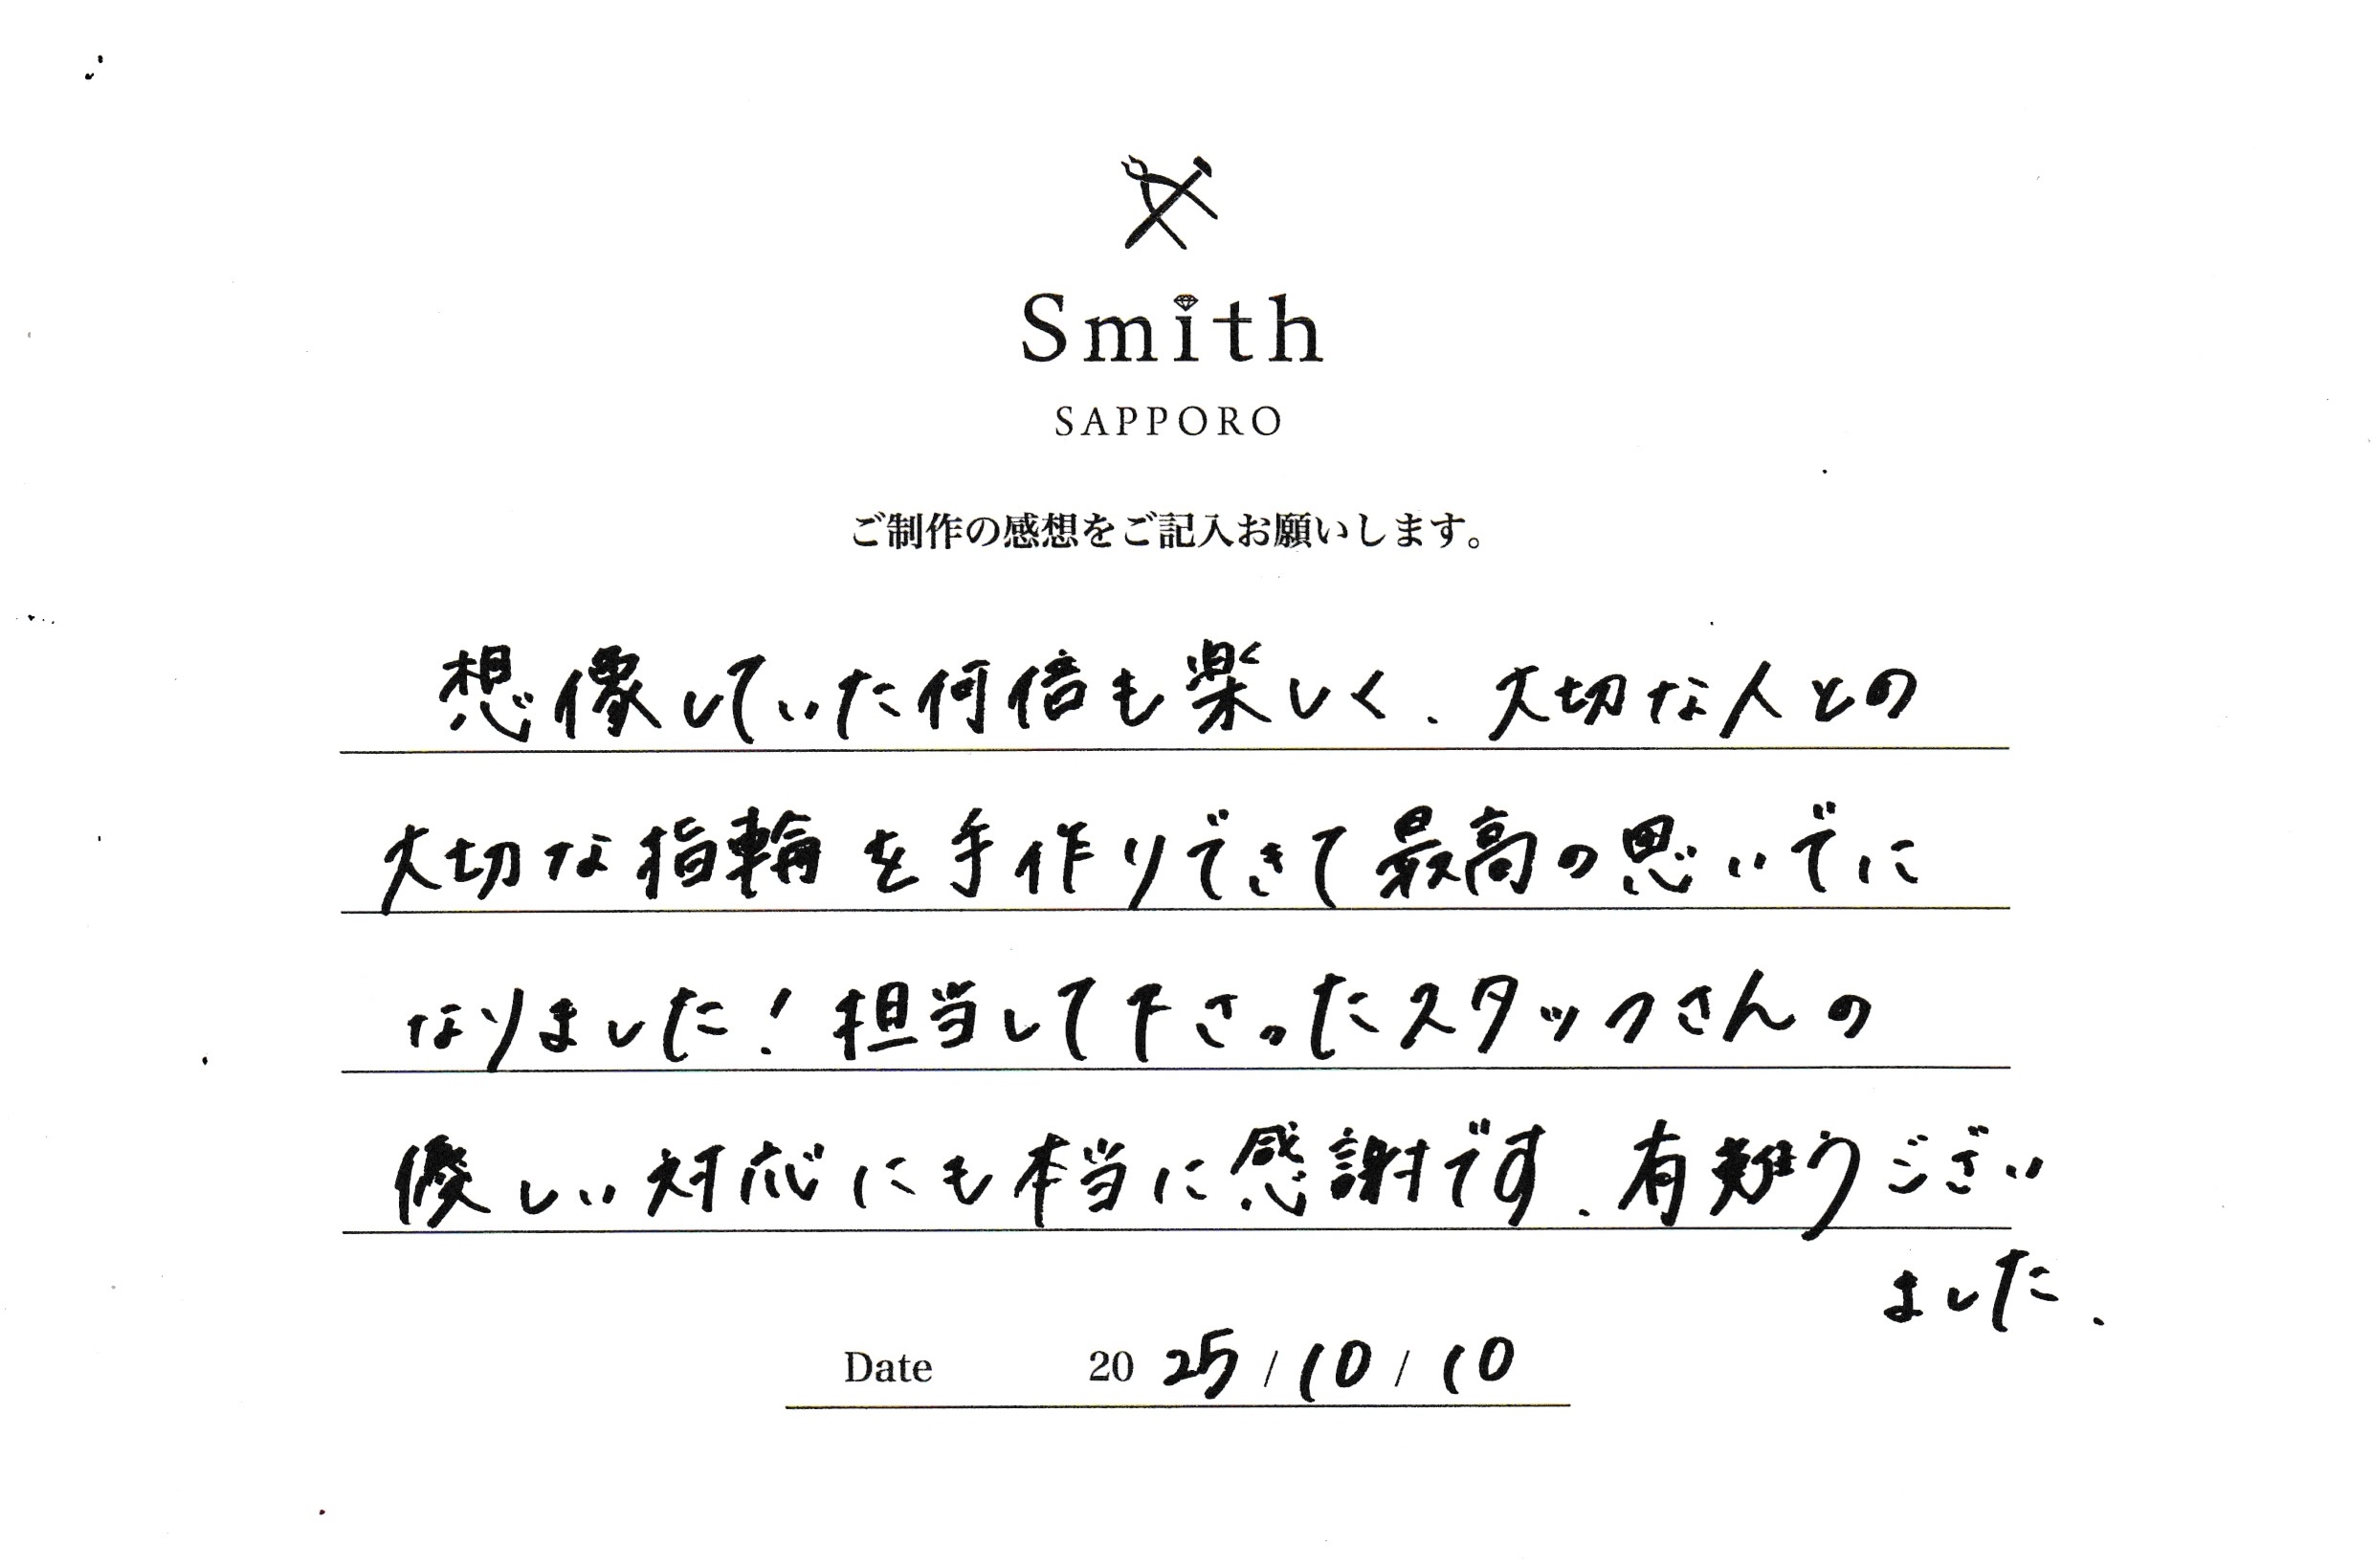 Smith
SAPPORO
ご制作の感想をご記入お願いします。
想像していた何倍も楽しく、大切な人との
大切な指輪を手作りできて最高の思いでに
なりました!担当して下さったスタッフさんの
優しい対応にも本当に感謝です。有難うござい
ました。
Date 2025/10/10